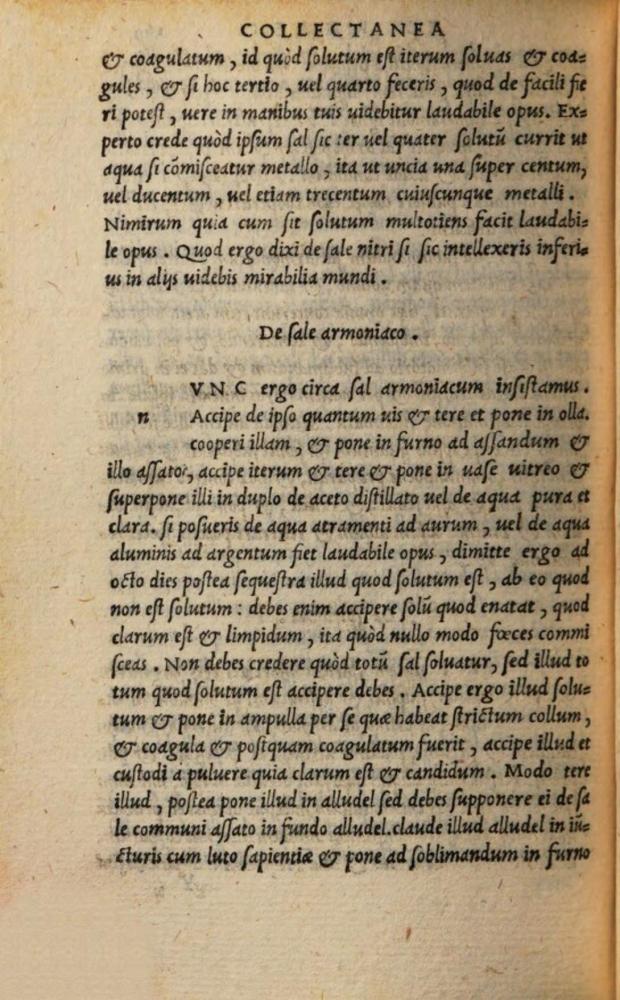 COLLECTANEA
& coagulatum, id quòd solutum est iterum soluas & coa=
gules, & si hoc tertio, uel quarto feceris, quod de facili fie
ri potest, uere in manibus tuis uidebitur laudabile opus. Ex=
perto crede quòd ipsum sal sic ter uel quater solutū currit ut
aqua si cōmisceatur metallo, ita ut uncia una super centum,
uel ducentum, uel etiam trecentum cuiuscunque metalli.
Nimirum quia cum sit solutum multotiens facit laudabi=
le opus. Quod ergo dixi de sale nitri si sic intellexeris inferi=
us in alijs uidebis mirabilia mundi.
De sale armoniaco.
VNC ergo circa sal armoniacum insistamus.
n Accipe de ipso quantum uis & tere et pone in olla.
cooperi illam, & pone in furno ad assandum &
illo assato, accipe iterum & tere & pone in uase uitreo &
superpone illi in duplo de aceto distillato uel de aqua pura et
clara. si posueris de aqua atramenti ad aurum, uel de aqua
aluminis ad argentum fiet laudabile opus, dimitte ergo ad
octo dies postea sequestra illud quod solutum est, ab eo quod
non est solutum: debes enim accipere solū quod enatat, quod
clarum est & limpidum, ita quòd nullo modo fœces commi
sceas. Non debes credere quòd totū sal soluatur, sed illud to
tum quod solutum est accipere debes. Accipe ergo illud solu=
tum & pone in ampulla per se quæ habeat strictum collum,
& coagula & postquam coagulatum fuerit, accipe illud et
custodi à puluere quia clarum est & candidum. Modo tere
illud, postea pone illud in alludel sed debes supponere ei de sa
le communi assato in fundo alludel. claude illud alludel in iū=
cturis cum luto sapientiæ & pone ad soblimandum in furno